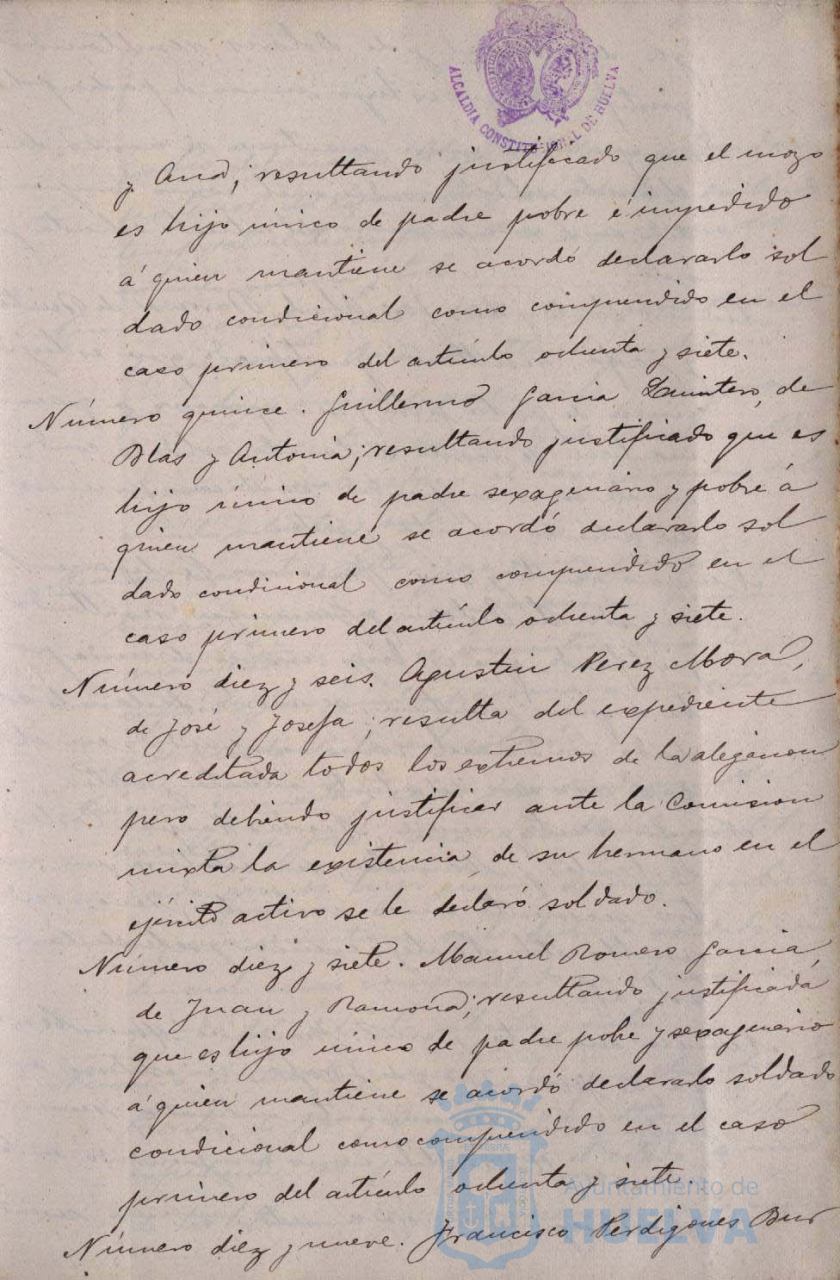 ALCALDIA CONSTITUCIONAL DE HUELVA
y Ana; resultando justificado que el mozo
es hijo único de padre pobre é impedido
á quien mantiene se acordó declararlo sol
dado condicional como comprendido en el
caso primero del artículo ochenta y siete.
Número quince. Guillermo Garcia Quintero, de
Blas y Antonia; resultando justificado que es
hijo único de padre sexagenario y pobre á
quien mantiene se acordó declararlo sol
dado condicional como comprendido en el
caso primero del artículo ochenta y siete.
Número diez y seis. Agustin Perez Mora,
de José y Josefa; resulta del expediente
acreditada todos los extremos de la alegacion
pero debiendo justificar ante la Comision
mixta la existencia de su hermano en el
ejército activo se le declaró soldado.
Número diez y siete. Manuel Romero Garcia,
de Juan y Ramona; resultando justificada
que es hijo único de padre pobre y sexagenario
á quien mantiene se acordó declararlo soldado
condicional como comprendido en el caso
primero del artículo ochenta y siete.
Número diez y nueve. Francisco Perdigones Bur
Ayuntamiento de
HUELVA